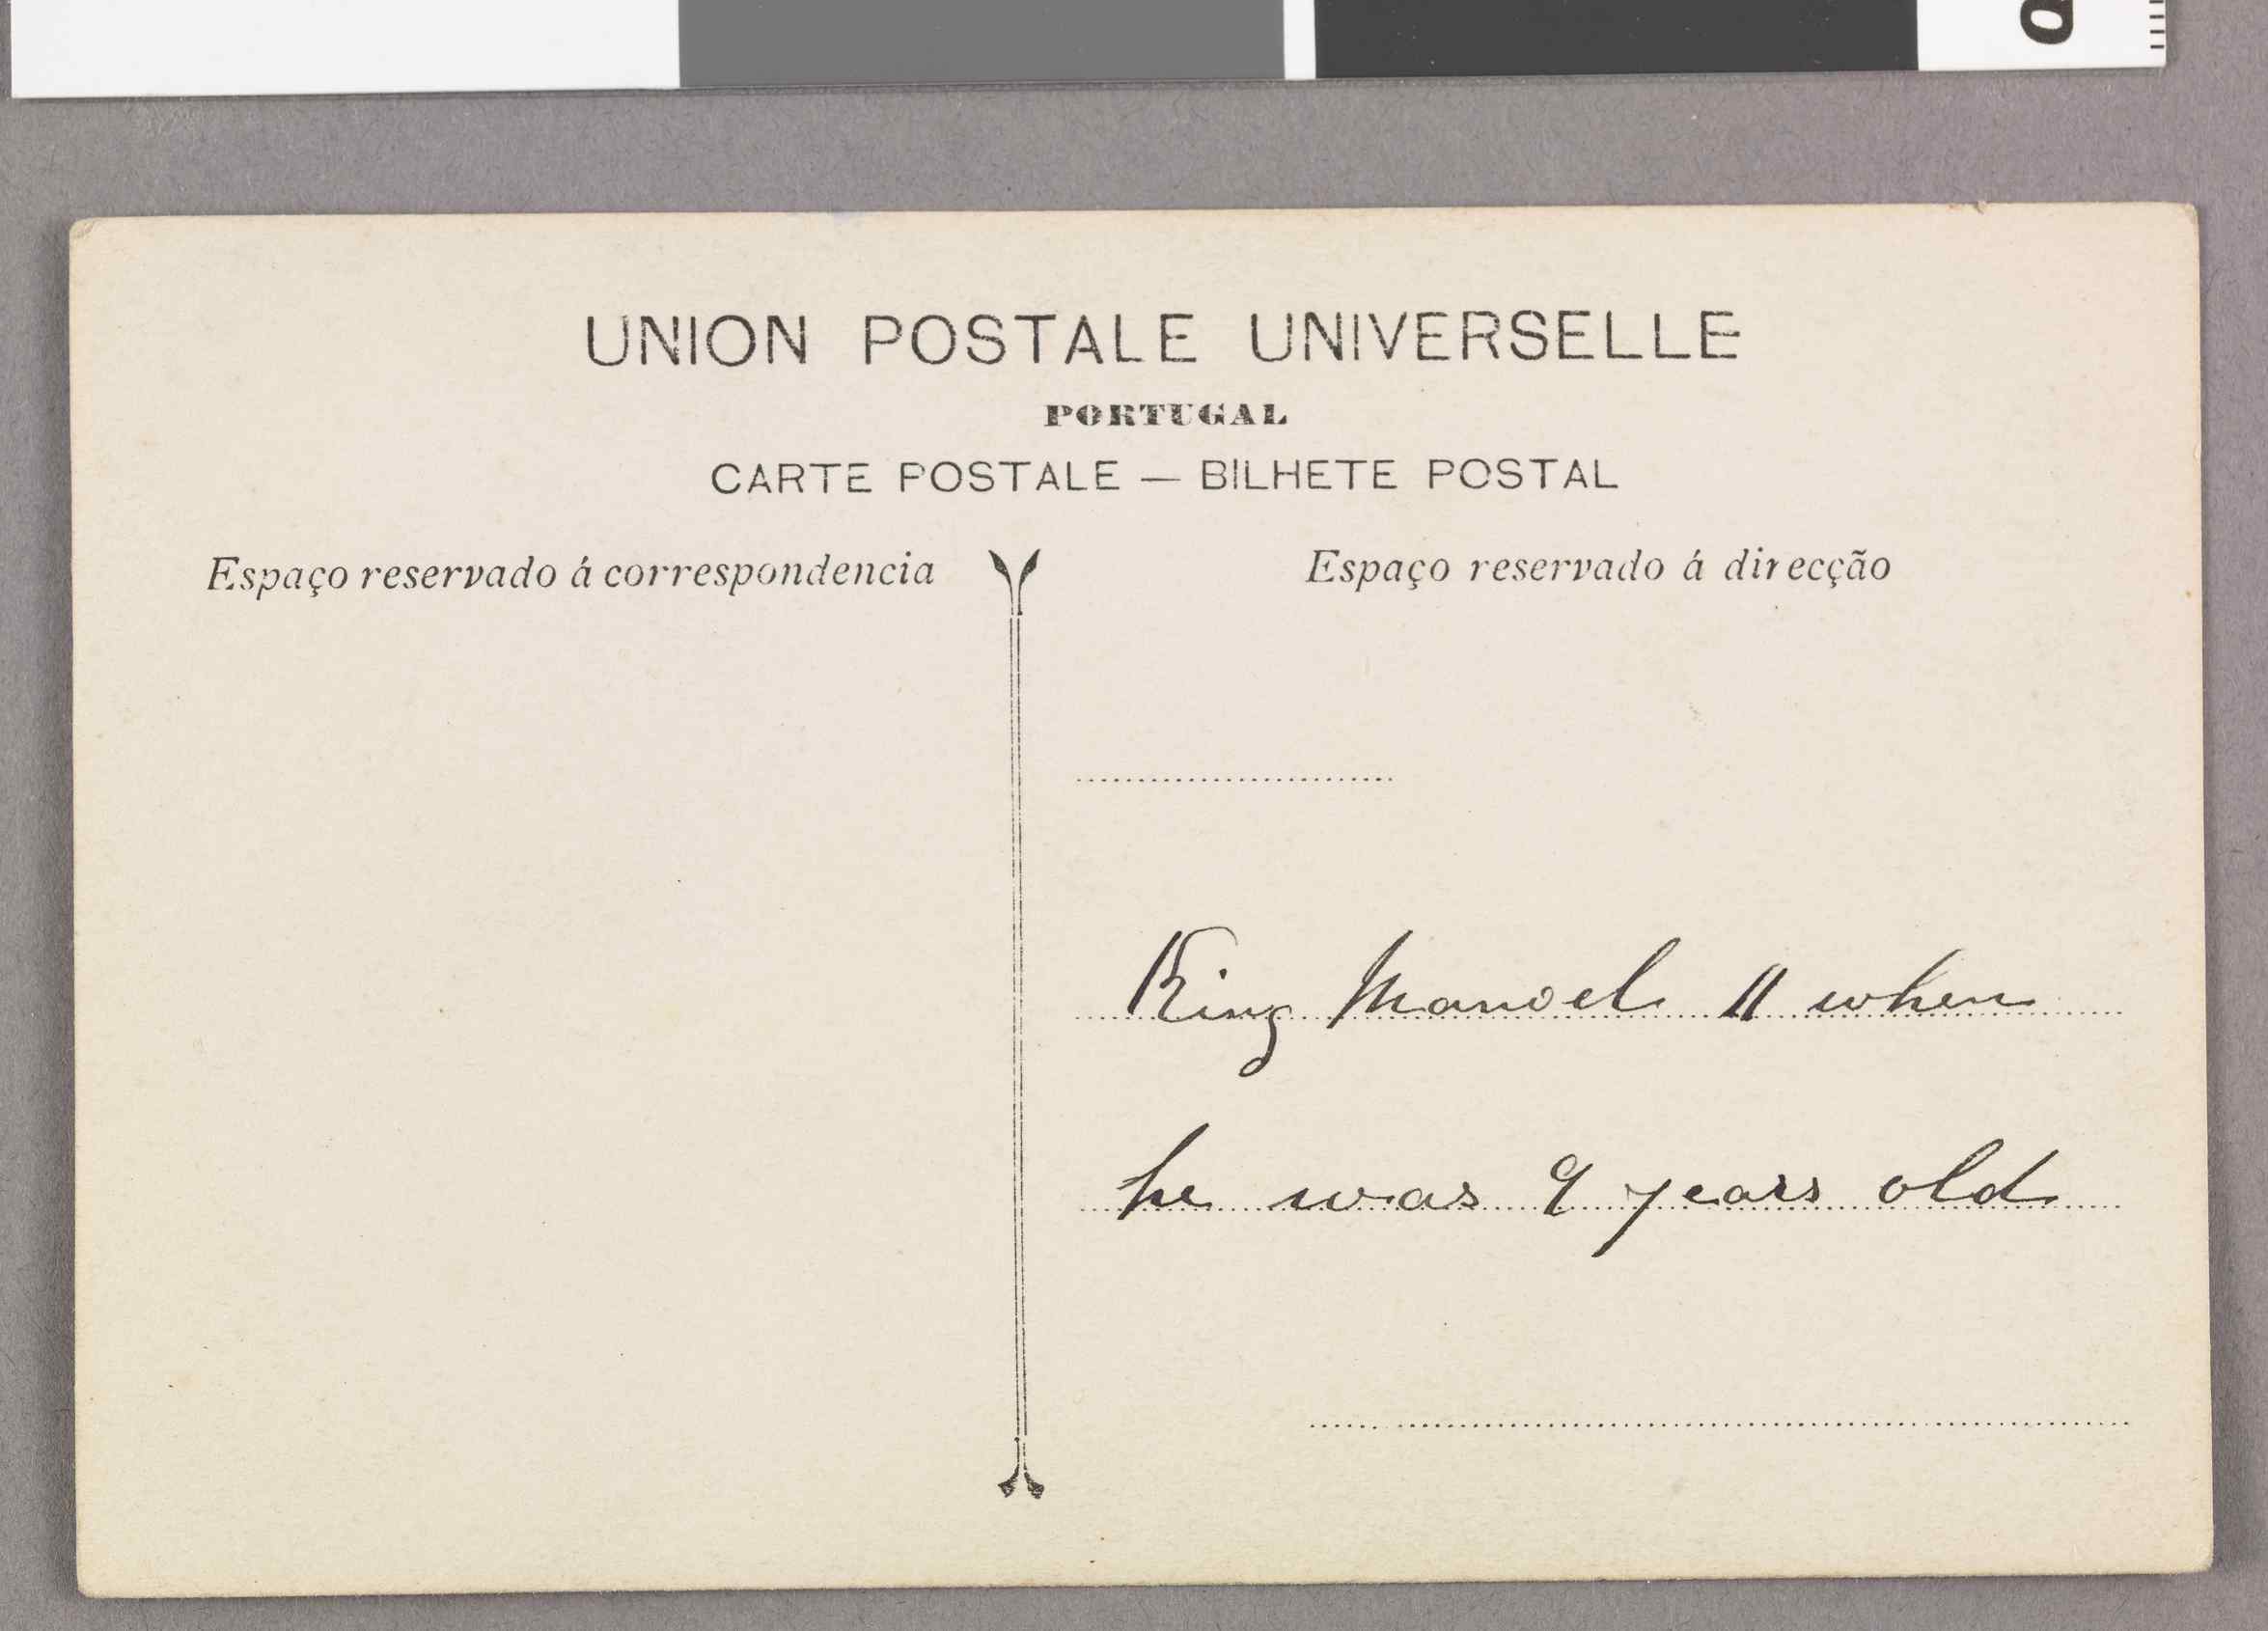 UNION POSTALE UNIVERSELLE
PORTUGAL
CARTE POSTALE — BILHETE POSTAL
Espaço reservado á correspondencia
Espaço reservado á direcção
King Manoel II when
he was 9 years old